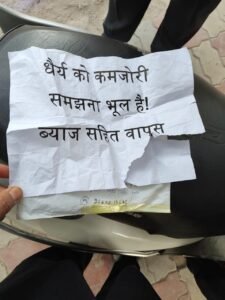 धैर्य को कमजोरी
समझना भूल है!
ब्याज सहित वापस